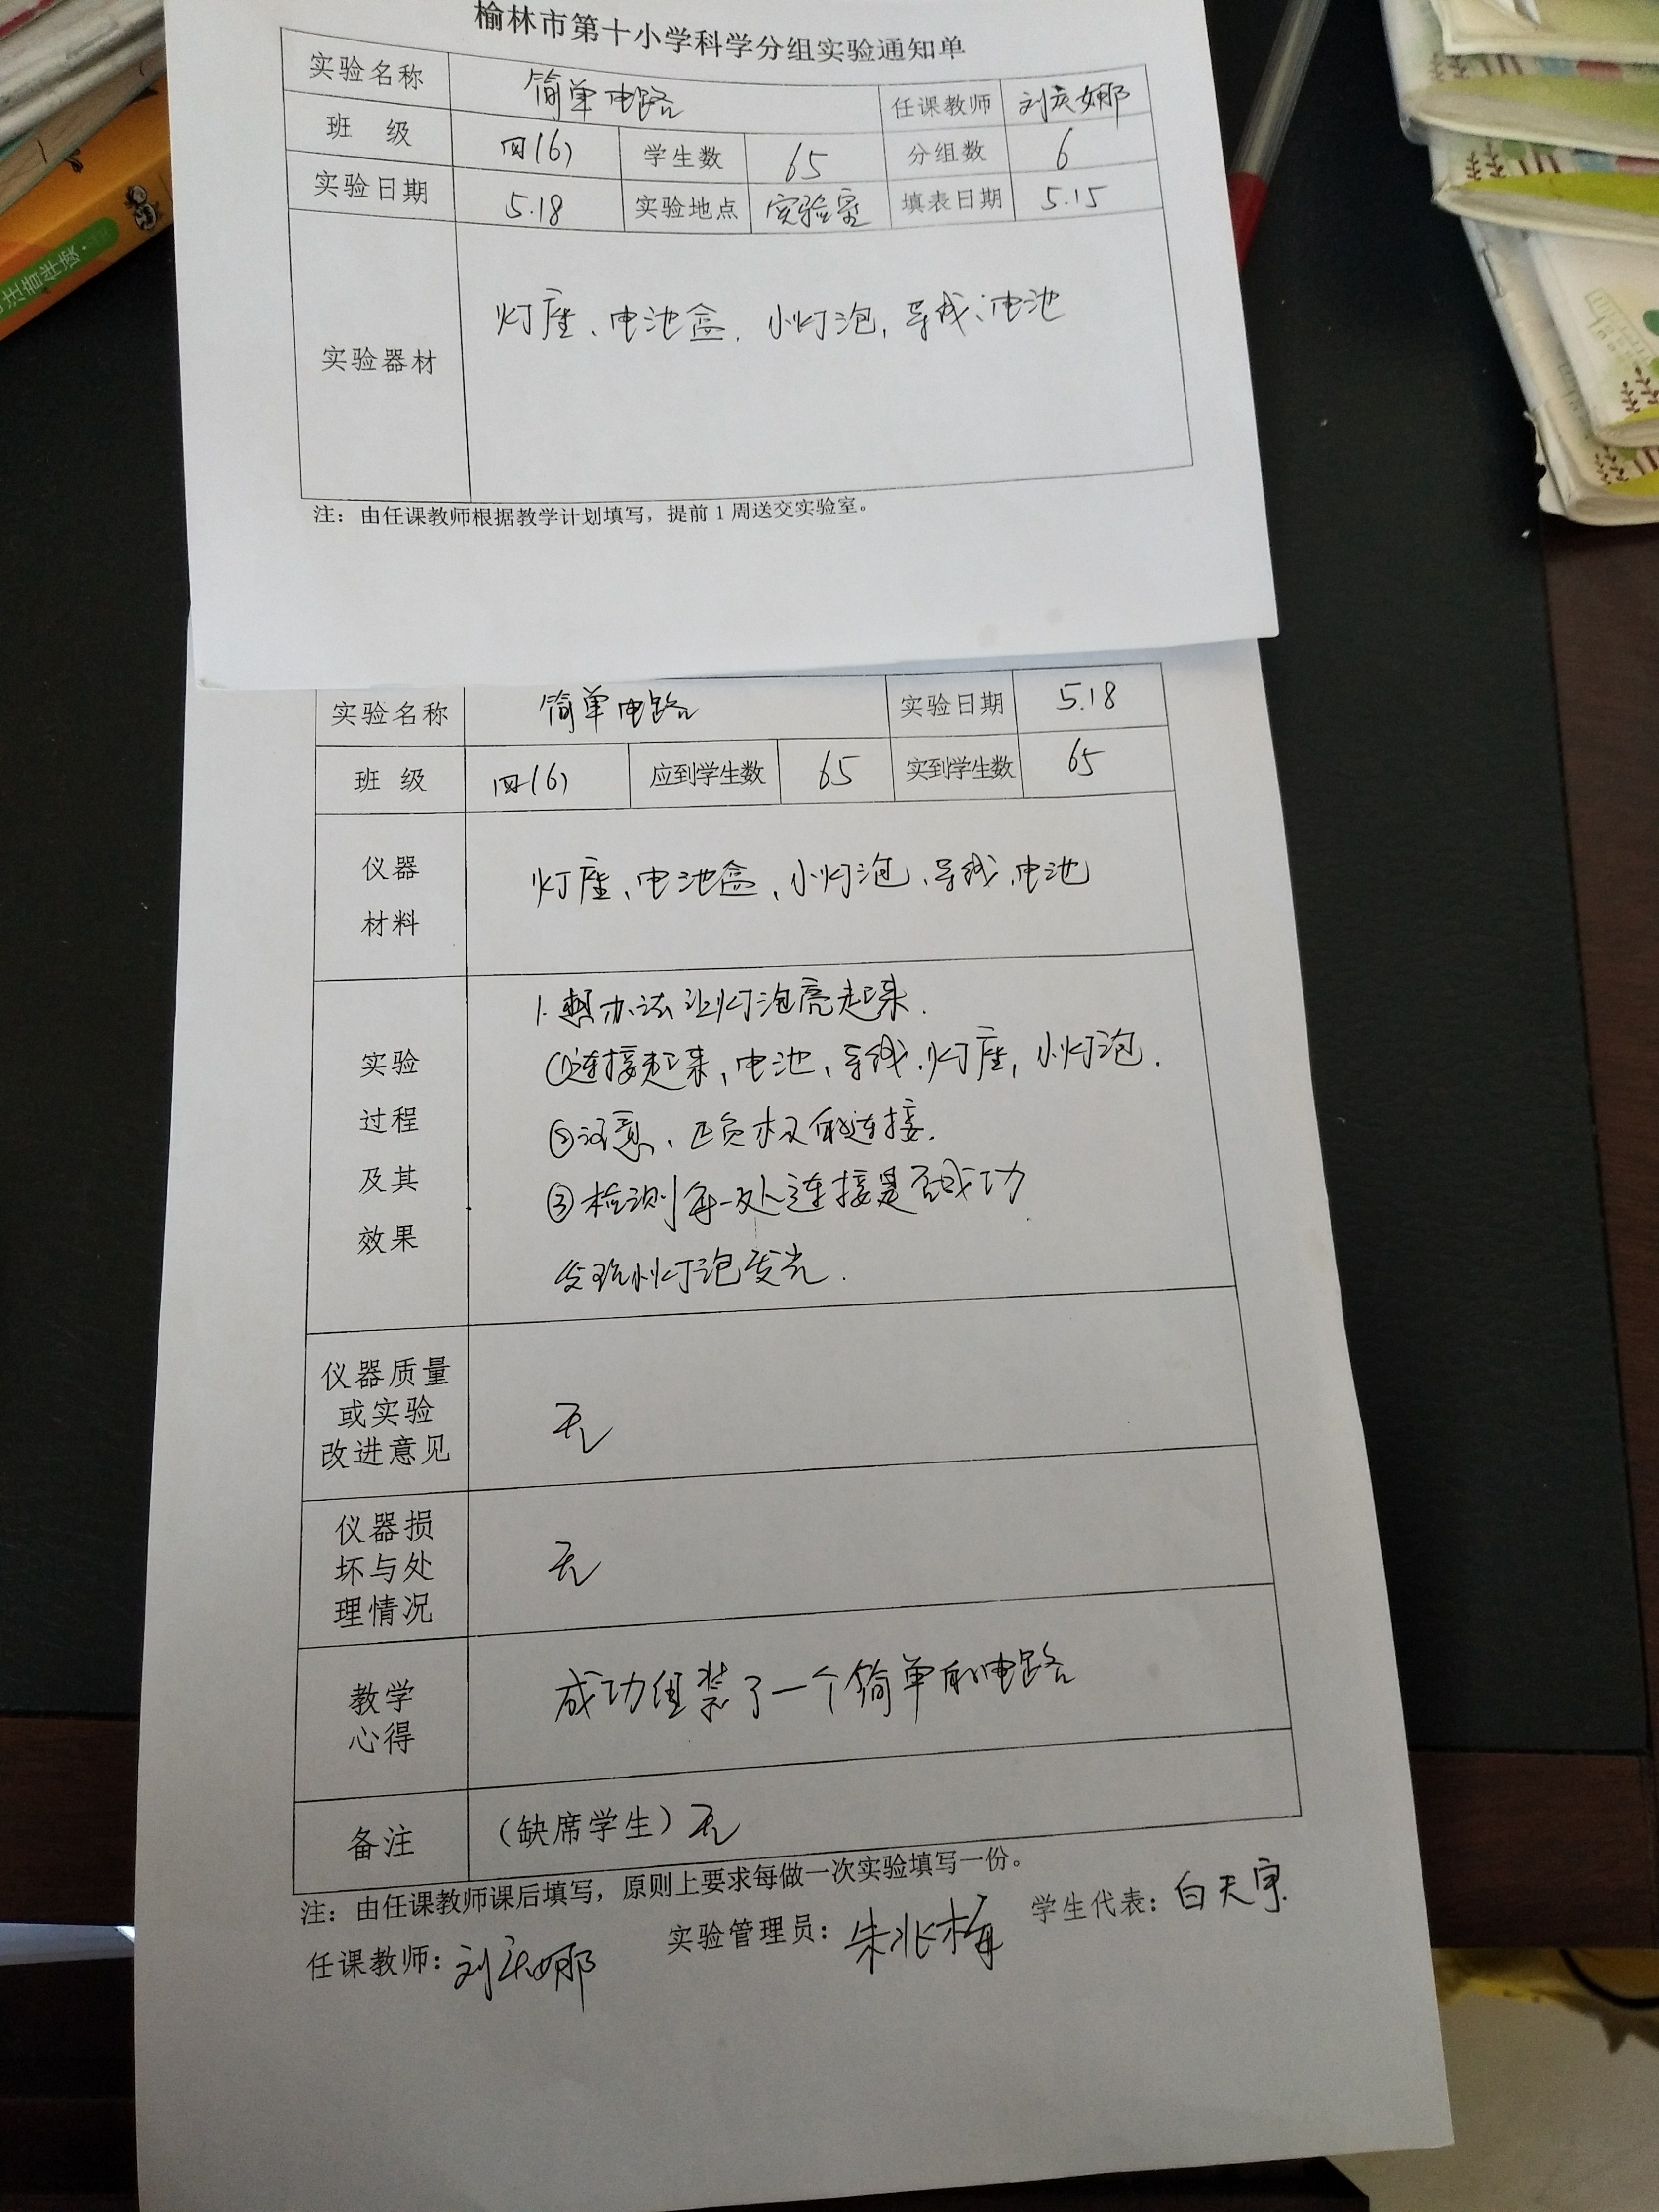 榆林市第十小学科学分组实验通知单
实验名称 简单电路 任课教师 刘庆娜
班 级 四(6) 学生数 65 分组数 6
实验日期 5.18 实验地点 实验室 填表日期 5.15
实验器材 灯座、电池盒、小灯泡、导线、电池
注：由任课教师根据教学计划填写，提前1周送交实验室。
实验名称 简单电路 实验日期 5.18
班 级 四(6) 应到学生数 65 实到学生数 65
仪器
材料
灯座、电池盒、小灯泡、导线、电池
实验
过程
及其
效果
1.想办法让灯泡亮起来.
①连接起来,电池,导线.灯座,小灯泡.
②注意、正负极的连接.
③检测每一处连接是否成功
发现小灯泡发光.
仪器质量
或实验
改进意见
无
仪器损
坏与处
理情况
无
教学
心得
成功组装了一个简单的电路
备注 （缺席学生）无
注：由任课教师课后填写，原则上要求每做一次实验填写一份。
任课教师：刘庆娜 实验管理员：朱兆梅 学生代表：白天宇